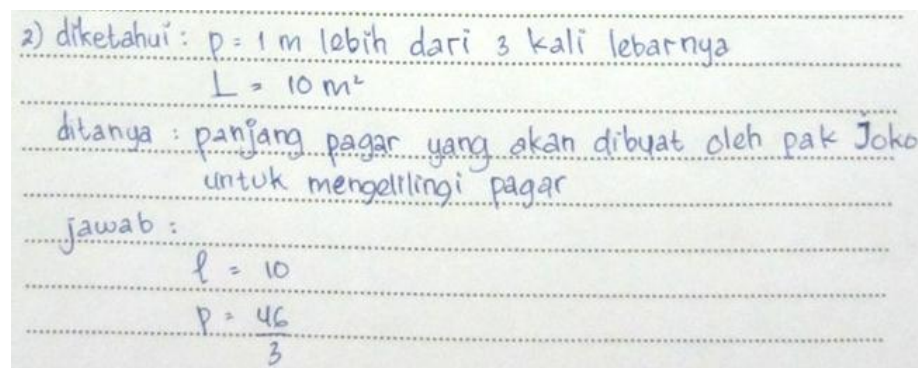 2) diketahui : p = 1 m lebih dari 3 kali lebarnya
L = 10 m²
ditanya : panjang pagar yang akan dibuat oleh pak Joko
untuk mengelilingi pagar
jawab :
l = 10
p = 46/3